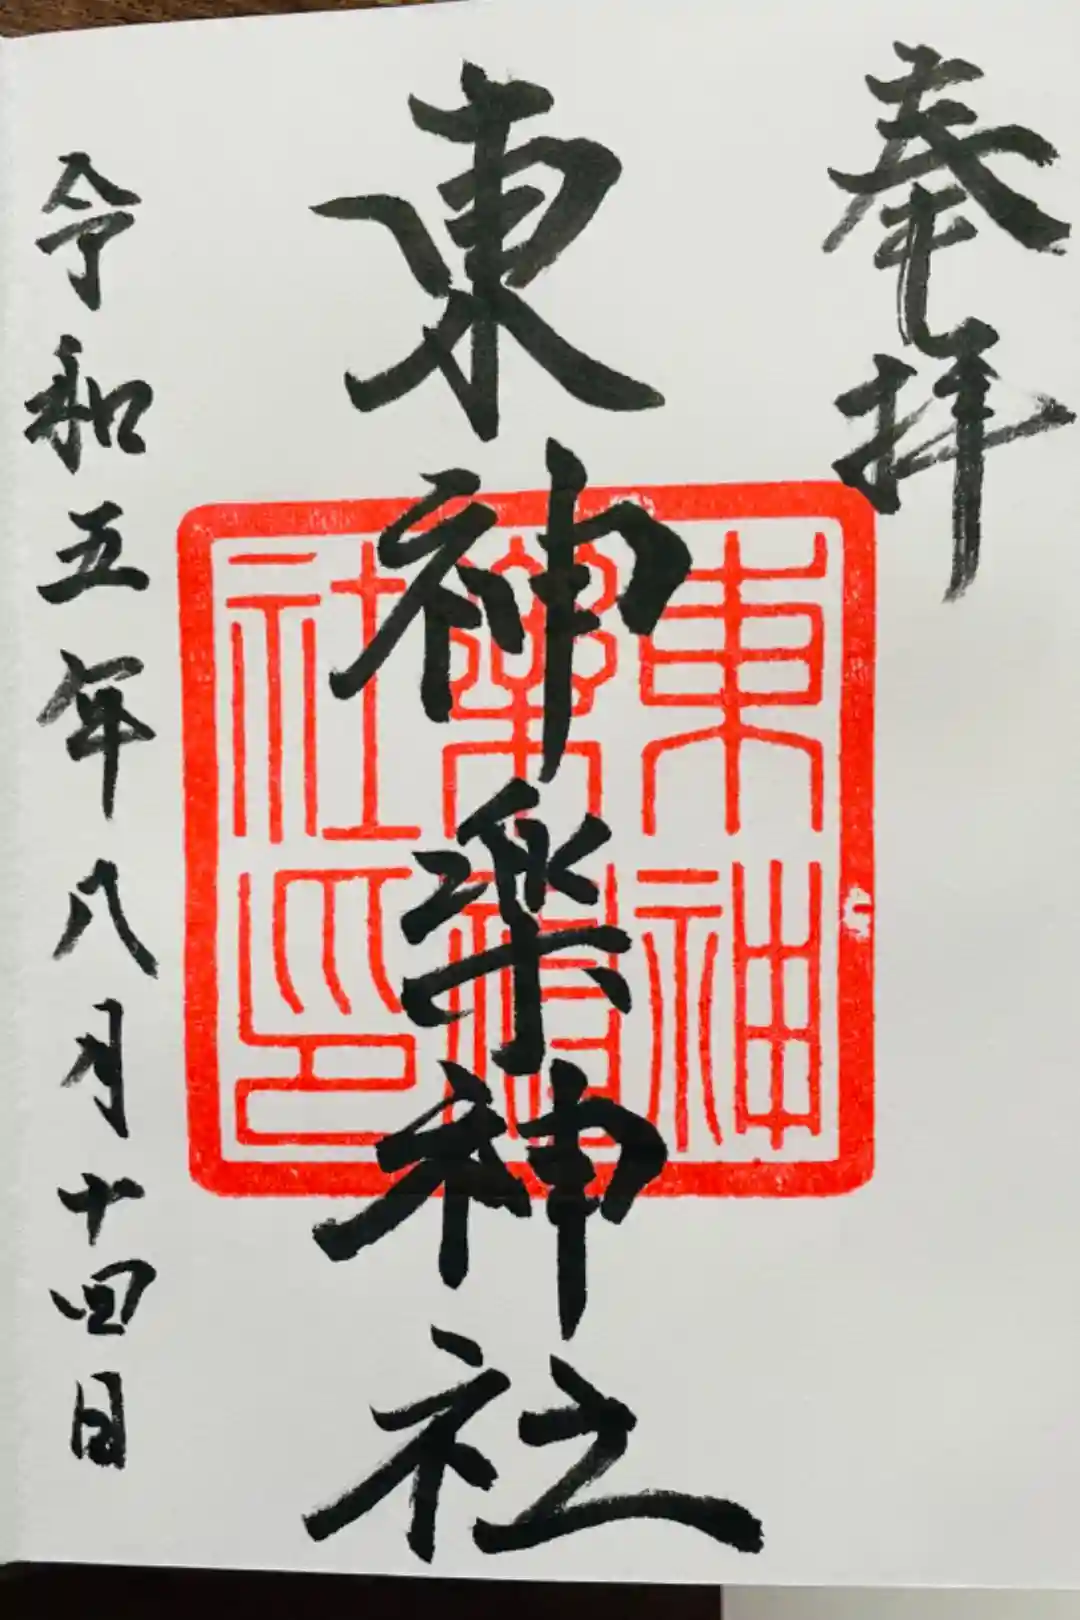 奉拝
東神楽神社
東神
樂神
社印
令和五年八月十四日